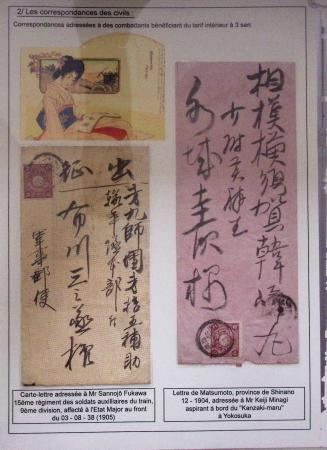 2/ Les correspondances des civils :
Correspondances adressées à des combattants bénéficiant du tarif intérieur à 3 sen.
出 第九師團第拾五補助
輸卒隊本部片
征 布川三之丞様
軍事郵便
相模横須賀韓崎丸
少附
様
Carte-lettre adressée à Mr Sannojô Fukawa
15ème régiment des soldats auxilliaires du train,
9ème division, affecté à l'Etat Major au front
du 03 - 08 - 38 (1905)
Lettre de Matsumoto, province de Shinano
12 - 1904, adressée à Mr Keiji Minagi
aspirant à bord du "Kanzaki-maru"
à Yokosuka